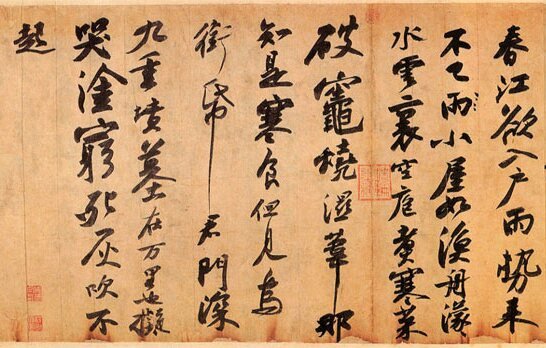 春江欲入户雨勢来
不已雨小屋如漁舟濛々
水雲裏空庖煑寒菜
破竈燒濕葦那
知是寒食但見烏
銜帋君門深
九重墳墓在万里也擬
哭塗窮死灰吹不
起